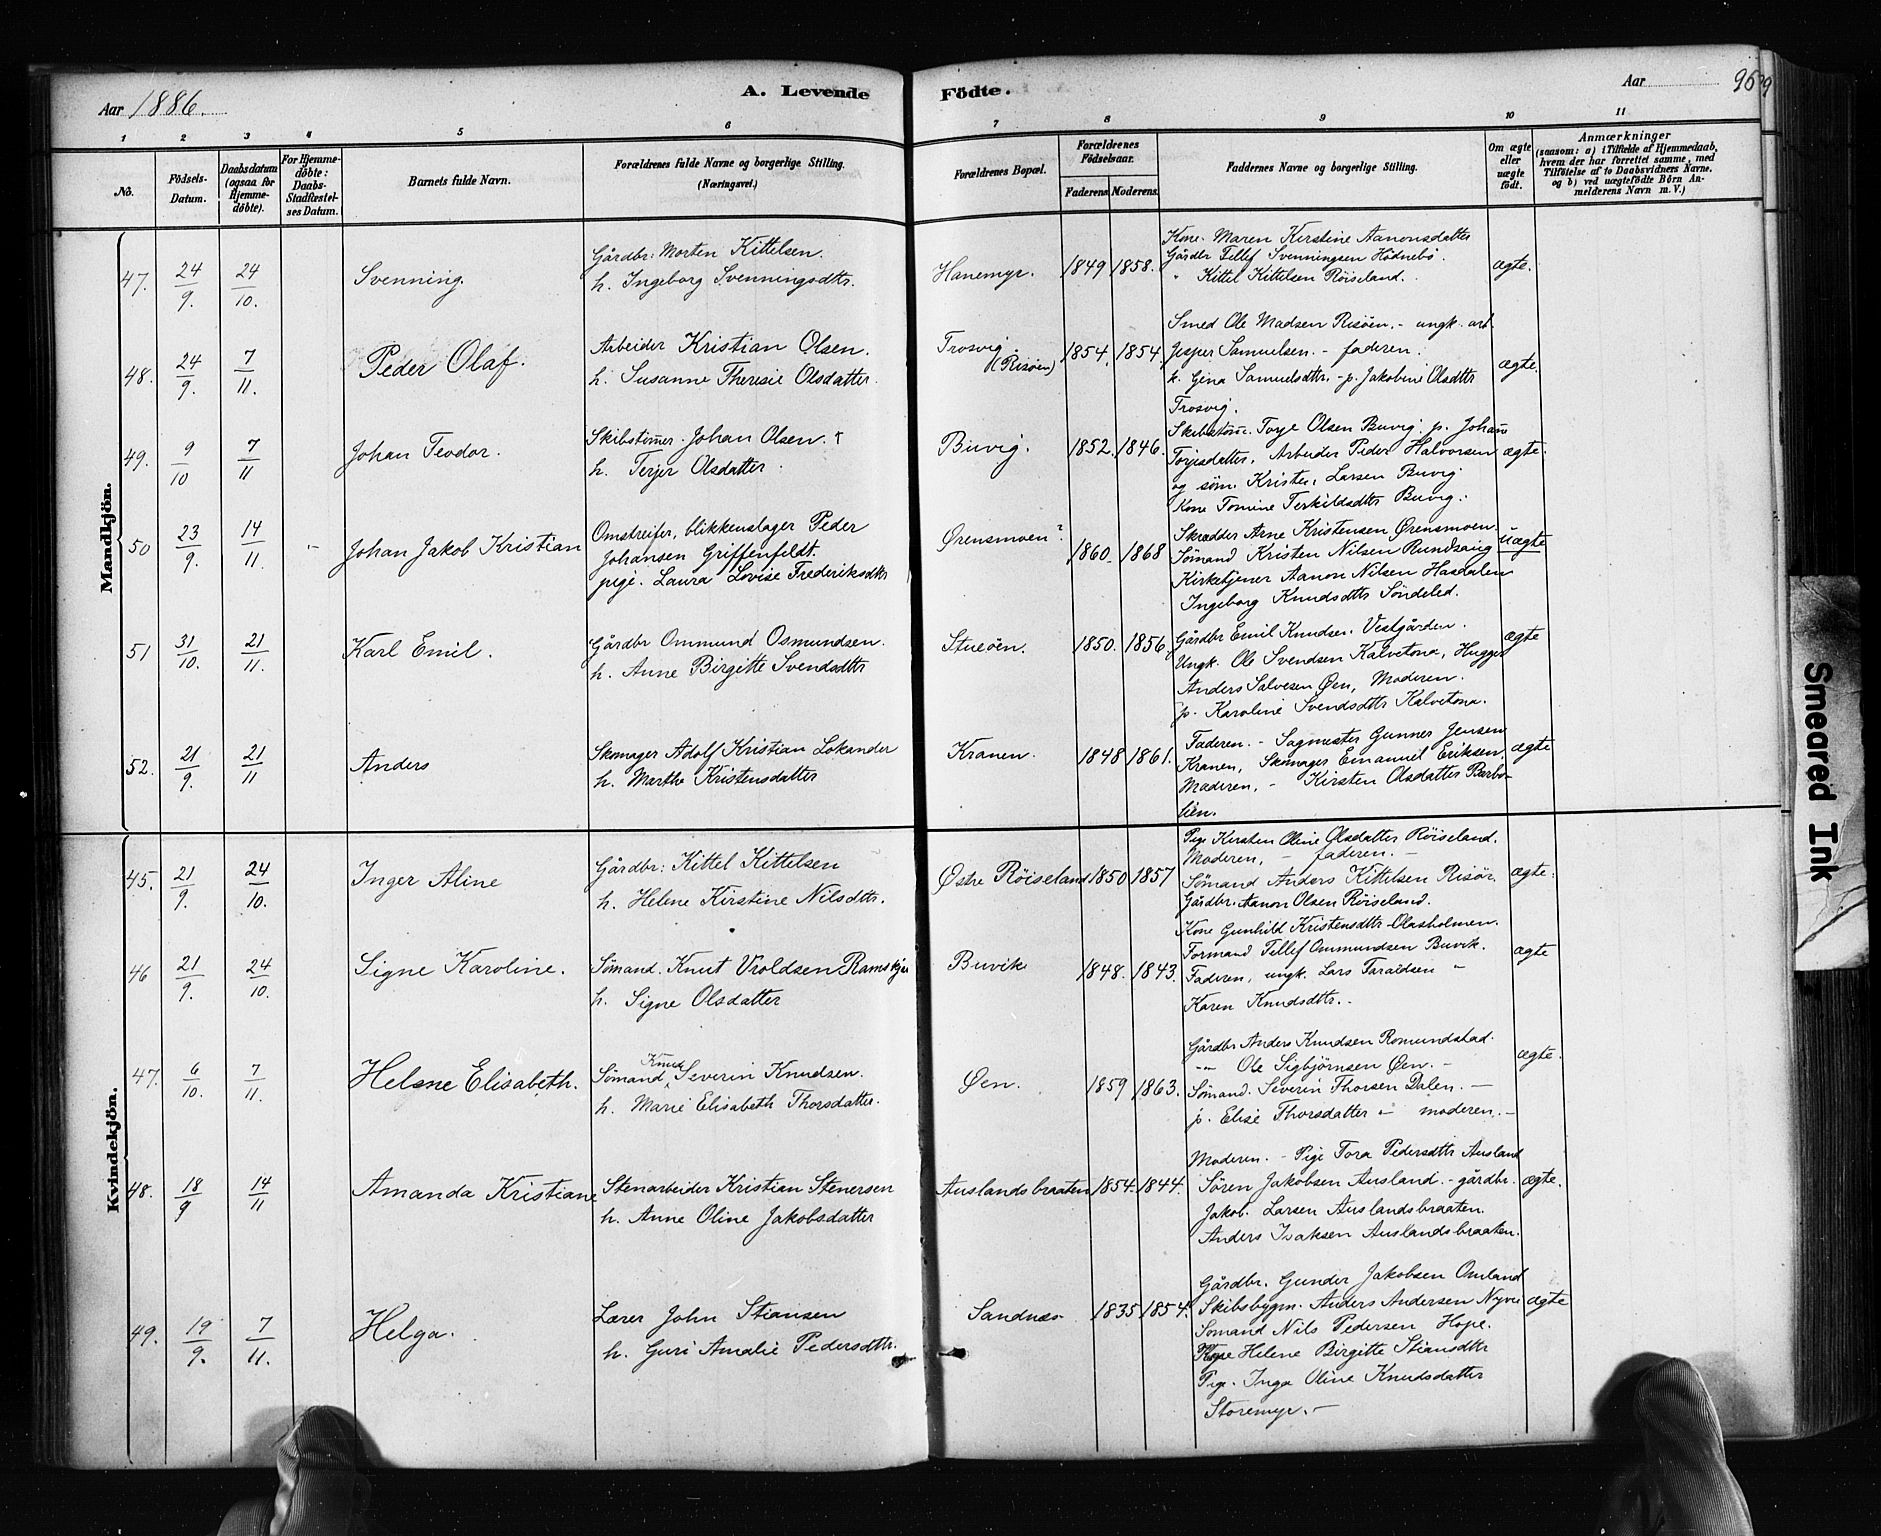 Aar 1886.
A. Levende Födte.
Aar 96
1 2 3 4 5 6 7 8 9 10 11
No.
Födsels-Datum.
Daabsdatum (ogsaa for Hjemme-döbte).
For Hjemme-döbte: Daabs-Stadfæstel-ses Datum.
Barnets fulde Navn.
Forældrenes fulde Navne og borgerlige Stilling. (Næringsvei.)
Forældrenes Bopæl.
Forældrenes Födselsaar.
Faderens. Moderens.
Faddernes Navne og borgerlige Stilling.
Om ægte eller uægte födt.
Anmærkninger
(saasom: a) i Tilfælde af Hjemmedaab, hvem der har forrettet samme, med Tilföielse af to Daabsvidners Navne, og b) ved uægtefödte Börn An-melderens Navn m. V.)
Mandkjön.
47. 24/9. 24/10. Svenning.
Gårdbr: Morten Kittelsen.
h. Ingeborg Svenningsdtr.
Hanemyr. 1849 1858.
Kone. Maren Kirstine Aanonsdatter
Gårdbr Tellef Svenningsen Hödnebö.
" Kittel Kittelsen Röiseland.
ægte.
48. 24/9. 7/11. Peder Olaf.
Arbeider Kristian Olsen.
h. Susanne Theresie Olsdatter.
Trosvig. (Risöen) 1854. 1854.
Smed Ole Madsen Risöen. - ungk. arb.
Jesper Samuelsen. - faderen.
k. Gina Samuelsdtr. - p. Jakobine Olsdttr
Trosvig.
ægte.
49. 9/10 7/11 Johan Teodor.
Skibstömer. Johan Olsen.
h. Terjer Olsdatter.
Buvig. 1852. 1846.
Skibstöm. Torje Olsen Buvig. p. Johanne
Torjesdatter. Arbeider Peder Halvorsen
og söm. Kristen Larsen Buvig
Kone Tomine Terkildsdttr Buvig.
ægte.
50 23/9. 14/11. Johan Jakob Kristian
Omstreifer, blikkenslager Peder
Johansen Griffenfeldt.
pige. Laura Lovise Frederiksdttr
Ørensmoen? 1860. 1868
Skrædder Arne Kristensen Ørensmoen.
Sömand Kristen Nilsen Rundsaug
Kirketjener Aanon Nilsen Hasdalen
Ingeborg Knudsdttr Söndeled.
Uægte
51 31/10. 21/11. Karl Emil.
Gårdbr Ommund Osmundsen.
h. Anne Birgitte Svendsdttr
Stueöen. 1850. 1856.
Gårdbr Emil Knudsen. Vestgården.
Ungk. Ole Svendsen Kalvetona, Hugger
Anders Salvesen Øen, Moderen.
p. Karoline Svendsdttr Kalvetona.
ægte
52. 21/9. 21/11 Anders
Skomager Adolf Kristian Lokander
h. Marthe Kristensdatter
Kranen. 1848 1861.
Faderen. - Sagmester Gunner Jensen
Kranen, Skomager Emanuel Eriksen.
Moderen, - Kirsten Olsdatter Barbo-
lien.
ægte
Kvindekjön.
45. 21/9. 24/10. Inger Aline
Gårdbr: Kittel Kittelsen
h. Helene Kirstine Nilsdttr.
Østre Röiseland 1850 1857
Pige Kirsten Oline Olsdatter Röiseland.
Moderen, - faderen. -
Sömand Anders Kittelsen Risör.
Gårdbr. Aanon Olsen Röiseland.
ægte.
46 21/9. 24/10. Signe Karoline.
Sömand. Knut Vroldsen Ramskjær
h. Signe Olsdatter
Buvik 1848. 1843.
Kone Gunhild Kristensdttr Olasholmen.
Formand Tellef Ommundsen Buvik.
Faderen, ungk. Lars Taraldsen "
Karen Knudsdttr. -
ægte
47. 6/10. 7/11. Helene Elisabeth.
Sömand Knud Severin Knudsen.
h. Marie Elisabeth Thorsdatter.
Øen. 1859 1863.
Gårdbr Anders Knudsen Romundstad.
" Ole Sigbjörnsen Øen. -
Sömand. Severin Thorsen Dalen. -
p. Elise Thorsdatter - moderen. -
ægte.
48. 18/9 14/11 Amanda Kristiane
Stenarbeider Kristian Stenersen
h. Anne Oline Jakobsdatter
Auslandsbraaten 1854. 1844.
Moderen. - Pige Tora Pedersdttr Ausland
Sören Jakobsen Ausland. - gårdbr.
Jakob Larsen Auslandsbraaten.
Anders Isaksen Auslandsbraaten.
ægte.
49. 19/9. 7/11. Helga.
Lærer John Stiansen
h. Guri Amalie Pedersdttr.
Sandnæs 1835 1854.
Gårdbr. Gunder Jakobsen Omland
Skibsbygm. Anders Andersen Nyvei
Sömand Nils Pedersen Hope.
Helene Birgitte Stiansdttr
Pige. Inga Oline Knudsdatter
Storemyr. -
ægte
Smeared Ink